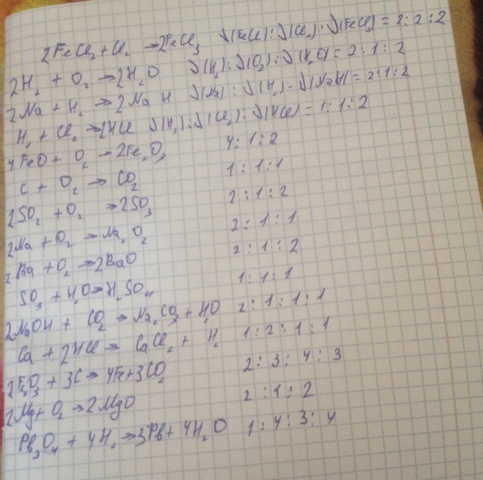 2FeCl₂ + Cl₂ → 2FeCl₃ ν(FeCl₂) : ν(Cl₂) : ν(FeCl₃) = 2 : 2 : 2
2H₂ + O₂ → 2H₂O ν(H₂) : ν(O₂) : ν(H₂O) = 2 : 1 : 2
2Na + H₂ → 2NaH ν(Na) : ν(H₂) : ν(NaH) = 2 : 1 : 2
H₂ + Cl₂ → 2HCl ν(H₂) : ν(Cl₂) : ν(HCl) = 1 : 1 : 2
4FeO + O₂ → 2Fe₂O₃ 4 : 1 : 2
C + O₂ → CO₂ 1 : 1 : 1
2SO₂ + O₂ → 2SO₃ 2 : 1 : 2
2Na + O₂ → Na₂O₂ 2 : 1 : 1
2Ba + O₂ → 2BaO 2 : 1 : 2
SO₃ + H₂O → H₂SO₄ 1 : 1 : 1
2NaOH + CO₂ → Na₂CO₃ + H₂O 2 : 1 : 1 : 1
Ca + 2HCl → CaCl₂ + H₂ 1 : 2 : 1 : 1
2Fe₂O₃ + 3C → 4Fe + 3CO₂ 2 : 3 : 4 : 3
2Mg + O₂ → 2MgO 2 : 1 : 2
Pb₃O₄ + 4H₂ → 3Pb + 4H₂O 1 : 4 : 3 : 4